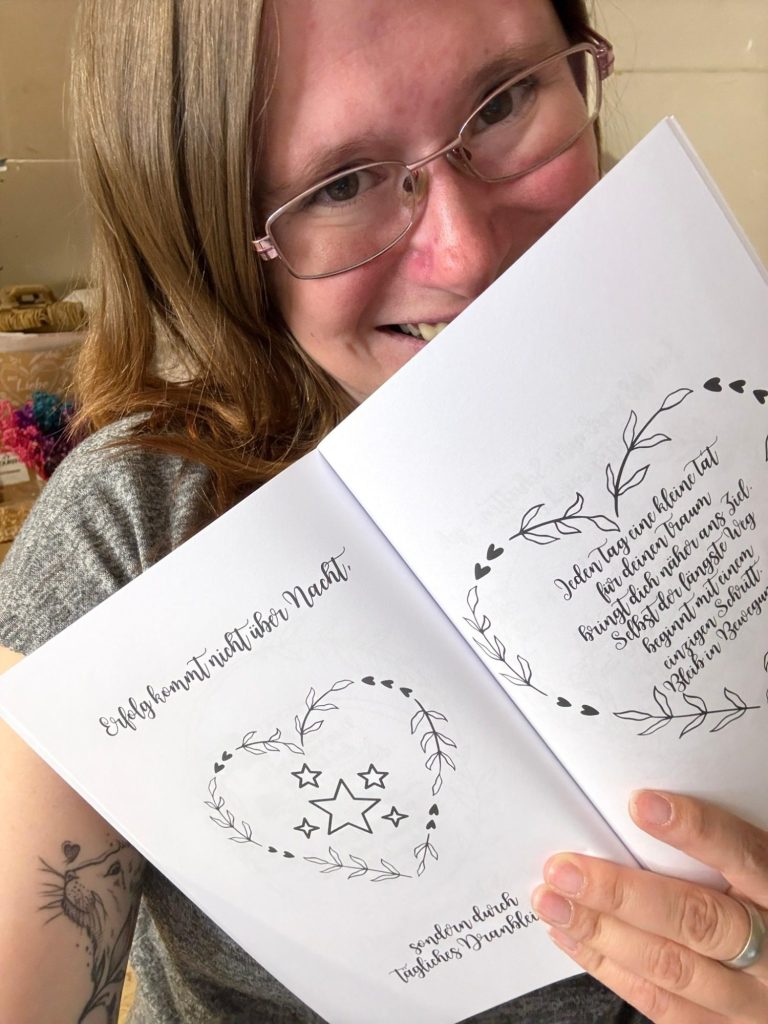 Liebe
Erfolg kommt nicht über Nacht,
sondern durch
tägliches
Jeden Tag eine kleine Tat
für deinen Traum
bringt dich näher ans Ziel.
Selbst der längste Weg
beginnt mit einem
einzigen Schritt.
Bleib in